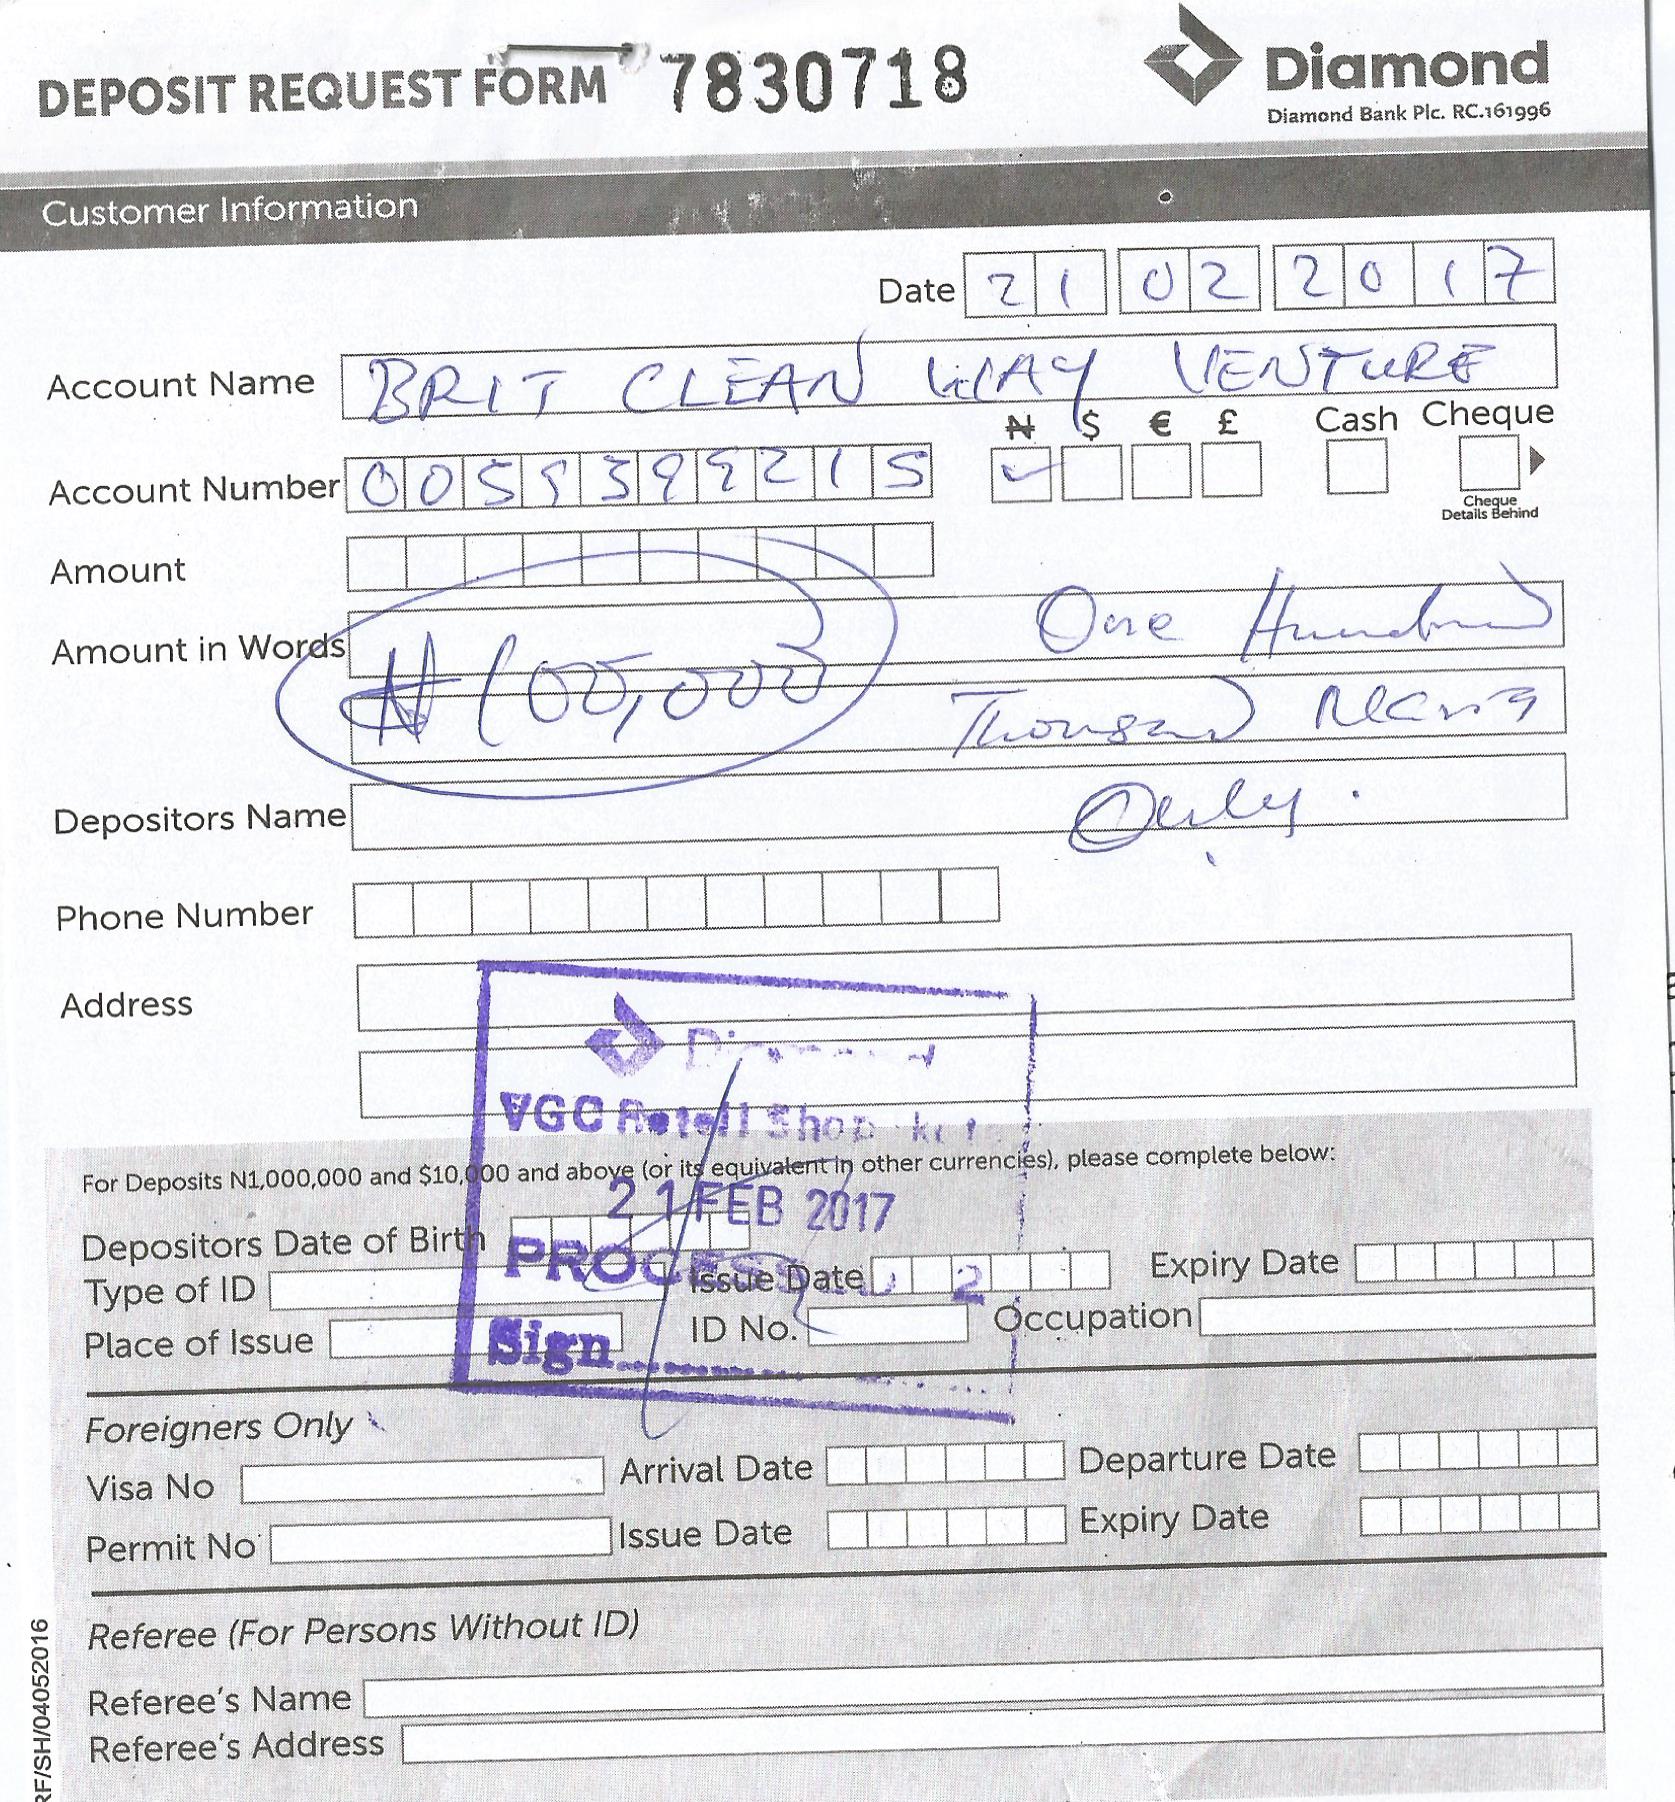 DEPOSIT REQUEST FORM 7830718
Diamond
Diamond Bank Plc. RC.161996
Customer Information
Date 21 02 2017
Account Name BRIT CLEAN WAY VENTURE
₦ $ € £ Cash Cheque
Account Number
Cheque
Details Behind
Amount
Amount in Words One Hundred
₦100,000 Thousand Naira
Depositors Name Only.
Phone Number
Address
Diamond
VGC Retail Shop
For Deposits N1,000,000 and $10,000 and above (or its equivalent in other currencies), please complete below:
21 FEB 2017
Depositors Date of Birth
PROCESSED 2
Type of ID Issue Date Expiry Date
Place of Issue ID No. Occupation
Sign
Foreigners Only
Visa No Arrival Date Departure Date
Permit No Issue Date Expiry Date
Referee (For Persons Without ID)
Referee's Name
Referee's Address
RF/SH/04052016